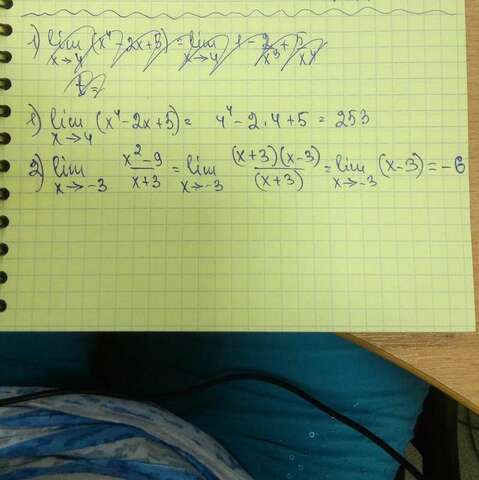 1) lim x→4 (x⁴ - 2x + 5) = lim x→4 1 - 2/x³ + 5/x⁴
1) lim x→4 (x⁴ - 2x + 5) = 4⁴ - 2·4 + 5 = 253
2) lim x→-3 x² - 9 / x + 3 = lim x→-3 (x+3)(x-3) / (x+3) = lim x→-3 (x-3) = -6